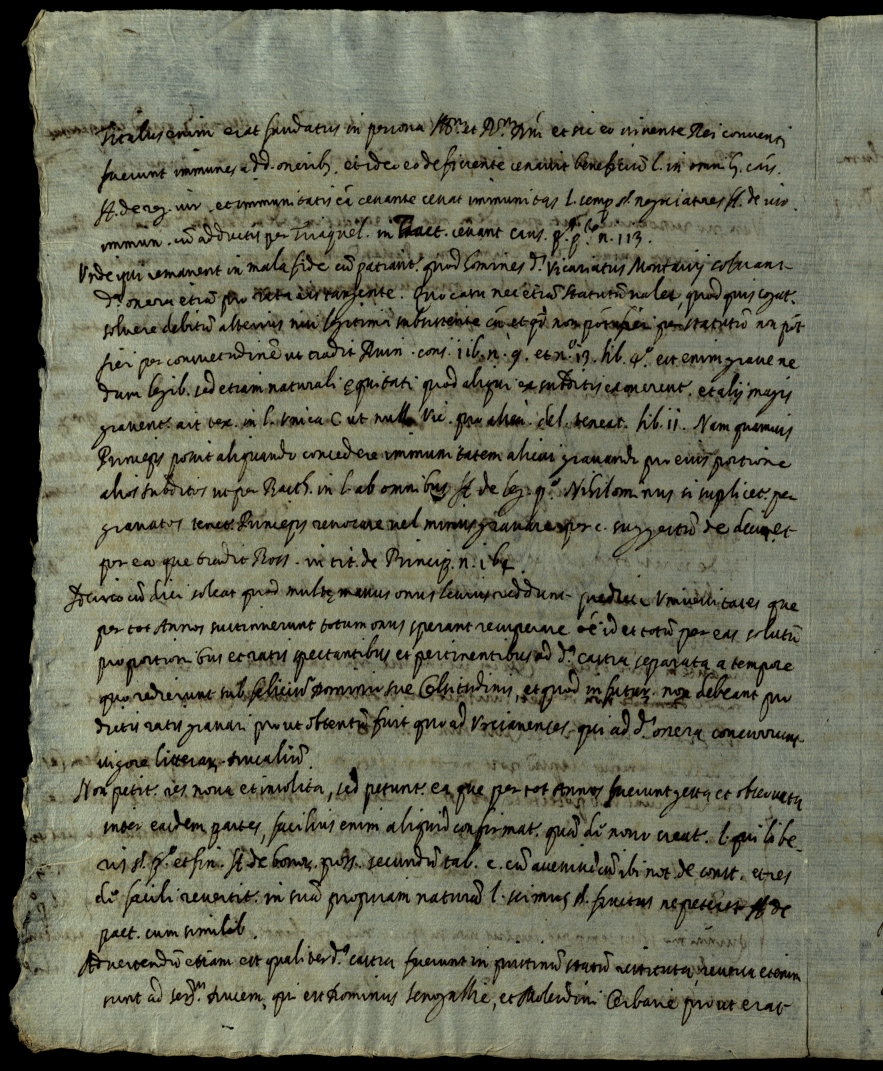 Titulus enim erat fundatus in persona Ill.mi et R.mi D.ni et sic eo vivente Rei conventi
fuerunt immunes a d.d. onerib; et ideo eo deficiente cessavit beneficiũ l. in omnib; caus.
ff. de reg. iur. et immunitatis cã cessante cessat immunitas l. semp. §. negociatores ff. de iure
immun. cũ adductis per Tiraquel. in Tract. cessant. caus. p.ª p.te n. 113.
Unde qui remanent in mala fide cũ patiant. quod homines d.i Vicariatus Montavij solvant
d.ª onera etiã pro rata eis tangente. Quo casu nec etiã statutũ valet, quod quis cogat.
solvere debitũ alterius nisi legitima subsistente cã et qđ non pót fieri per statutũ non pót
fieri per consuetudinẽ ut tradit Ruin. cons. 116. n. 9. et n.º 13. lib. 4.º est enim grave ne
dum legib. sed etiam naturali equitati quod aliqui ex subditis exonerent. et alij magis
gravent. ait tex. in l. unica C. ut nullus ex Vic. pro alien. deb. teneat. lib. 11. Nam quamvis
Princeps possit aliquando concedere immunitatem alicui gravando pro eius portione
alios subditos ut per Barth. in l. ab omnibus ff. de leg. p.º Nihilominus si suplicet. per
gravatos tenet. Princeps revocare vel minus gravare per c. suggestũ de deci. et
per ea que tradit Ross. in tit. de Princip. n. 164.
Idcirco cũ dici soleat quod multe manus onus levius reddunt predicte Universitates que
per tot Annos sustinuerunt totum onus sperant recuperare oẽ id et totũ per eas solutũ
pro portionibus et ratis spectantibus et pertinentibus ad d.ª castra separata a tempore
quo redierunt sub felicius Dominio sue Celsitudinis, et quod in futur. non debeant pro
dictis ratis gravari prout obtentũ fuit quo ad Urcianenses qui ad d.ª onera concurrunt
vigore litterar. ducaliũ.
Non petit. res nova et insolita, sed petunt. ea que per tot Annos fuerunt gesta et observata
inter easdem partes, facilius enim aliquid confirmat. quã de novo creat. l. qui libe-
ris §. p.º et fin. ff. de bonor. poss. secundũ tab. c. cũ accessissent ibi not. de const. et res
de facili revertit. in suã propriam naturã l. si unus §. pactus ne peteret ff. de
pact. cum similib.
Advertendũ etiam est qualiter d.ª castra fuerunt in pristinũ statũ restituta, reversa etenim
sunt ad ser.m Ducem, qui est Dominus Senogallie, et Molendini Cerbarie prout erat